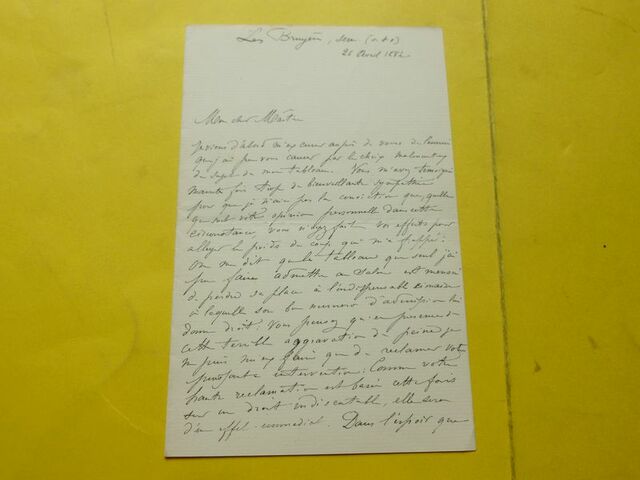 Les Bruyères, Sèvres (S & O)
26 Avril 1882
Mon cher Maître
Je viens d'abord m'excuser auprès de vous de l'ennui
que j'ai pu vous causer par le choix malencontreux
du sujet de mon tableau. Vous m'avez témoigné
mainte fois trop de bienveillante sympathie
pour que je n'aie pas la conviction que, quelle
que soit votre opinion personnelle dans cette
circonstance, vous n'ayez fait vos efforts pour
alléger le poids du coup qui m'a frappé.
On me dit que le tableau que seul j'ai
pu faire admettre au Salon est menacé
de perdre sa place à l'indispensable cimaise
à laquelle son bon numéro d'admission lui
donne droit. Vous pensez qu'en présence de
cette terrible aggravation de peine je
ne puis mieux faire que de réclamer votre
puissante intervention. Comme votre
haute réclamation est basée cette fois
sur un droit indiscutable, elle sera
d'un effet immédiat. Dans l'espoir que